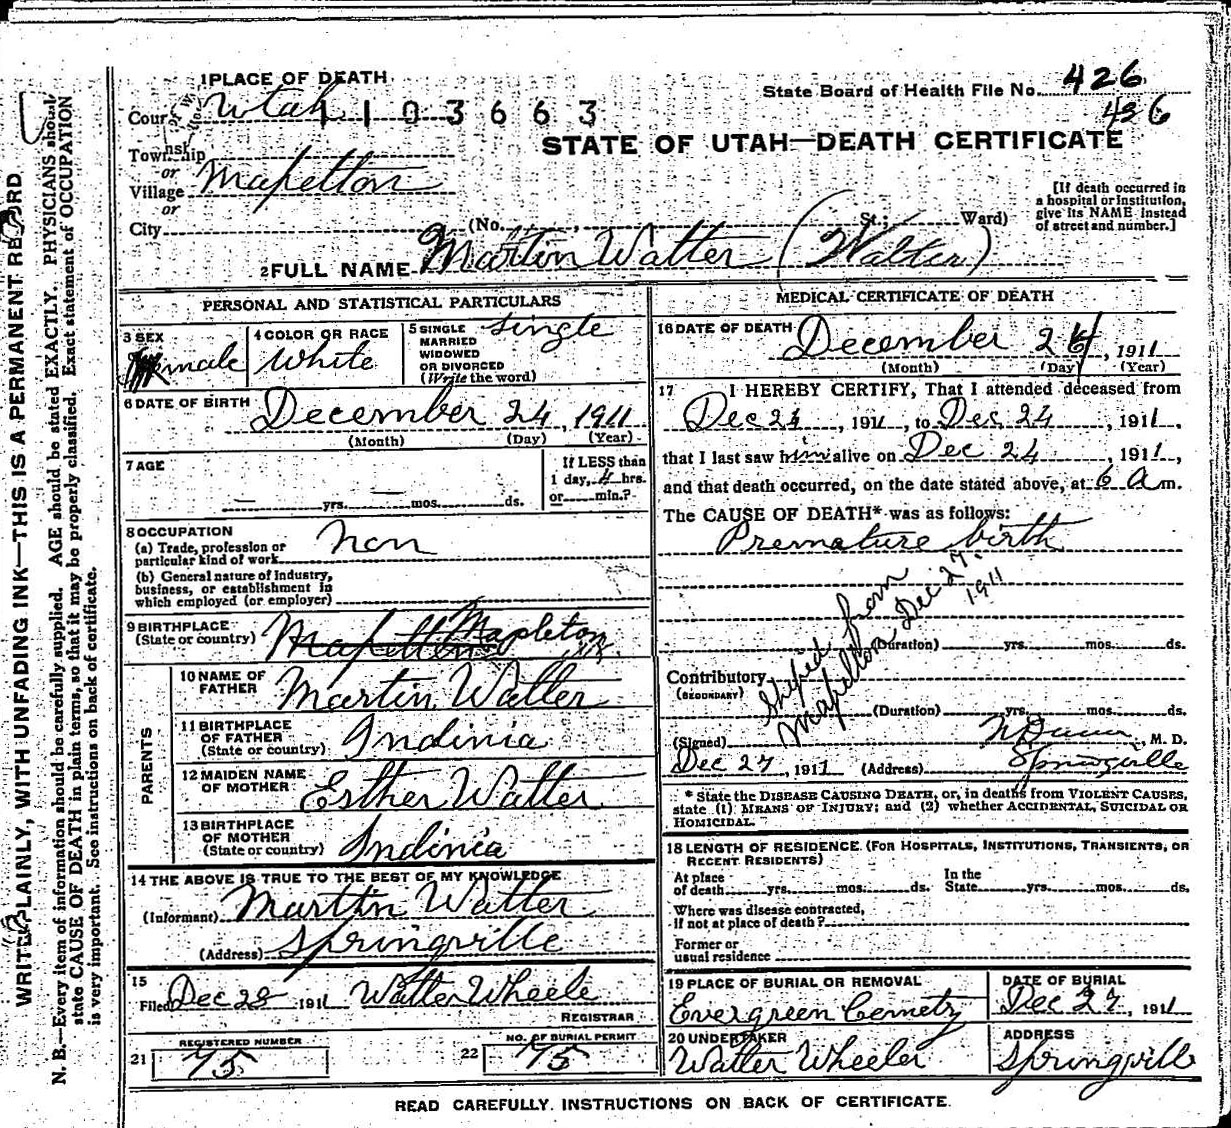 1 PLACE OF DEATH
State Board of Health File No. 426
436
County Utah 1103663
STATE OF UTAH—DEATH CERTIFICATE
Township
or
Village Mapelton
or
City (No. , St.; Ward)
[If death occurred in
a hospital or institution,
give its NAME instead
of street and number.]
2 FULL NAME Martin Walter (Walter)
PERSONAL AND STATISTICAL PARTICULARS
3 SEX male
4 COLOR OR RACE White
5 SINGLE MARRIED WIDOWED OR DIVORCED (Write the word) Single
6 DATE OF BIRTH December 24, 1911
(Month) (Day) (Year)
7 AGE — yrs. — mos. ds.
If LESS than
1 day, 4 hrs.
or min.?
8 OCCUPATION
(a) Trade, profession or
particular kind of work non
(b) General nature of industry,
business, or establishment in
which employed (or employer)
9 BIRTHPLACE
(State or country) Mapelton Mapleton
PARENTS
10 NAME OF
FATHER Martin Walter
11 BIRTHPLACE
OF FATHER
(State or country) Indinia
12 MAIDEN NAME
OF MOTHER Esther Walter
13 BIRTHPLACE
OF MOTHER
(State or country) Indinia
14 THE ABOVE IS TRUE TO THE BEST OF MY KNOWLEDGE
(Informant) Marttin Walter
(Address) Springville
15
Filed Dec 28 1911 Walter Wheele
REGISTRAR
21 REGISTERED NUMBER 75
22 NO. OF BURIAL PERMIT 75
MEDICAL CERTIFICATE OF DEATH
16 DATE OF DEATH December 24, 1911
(Month) (Day) (Year)
17 I HEREBY CERTIFY, That I attended deceased from
Dec 24, 1911, to Dec 24, 1911,
that I last saw him alive on Dec 24, 1911,
and that death occurred, on the date stated above, at 6 a m.
The CAUSE OF DEATH* was as follows:
Premature birth
Shiped from
Mapelton Dec 27
1911
(Duration) yrs. mos. ds.
Contributory
(SECONDARY)
(Duration) yrs. mos. ds.
(Signed) , M. D.
Dec 27, 1911 (Address) Springville
* State the DISEASE CAUSING DEATH, or, in deaths from VIOLENT CAUSES,
state (1) MEANS OF INJURY; and (2) whether ACCIDENTAL, SUICIDAL OR
HOMICIDAL.
18 LENGTH OF RESIDENCE. (FOR HOSPITALS, INSTITUTIONS, TRANSIENTS, OR
RECENT RESIDENTS)
At place
of death yrs. mos. ds. In the
State yrs. mos. ds.
Where was disease contracted,
if not at place of death?
Former or
usual residence
19 PLACE OF BURIAL OR REMOVAL
Evergreen Cemetry
DATE OF BURIAL
Dec 27, 1911
20 UNDERTAKER
Walter Wheeler
ADDRESS
Springville
READ CAREFULLY. INSTRUCTIONS ON BACK OF CERTIFICATE.
WRITE PLAINLY, WITH UNFADING INK—THIS IS A PERMANENT RECORD
N. B.—Every item of information should be carefully supplied. AGE should be stated EXACTLY. PHYSICIANS should
state CAUSE OF DEATH in plain terms, so that it may be properly classified. Exact statement of OCCUPATION
is very important. See instructions on back of certificate.